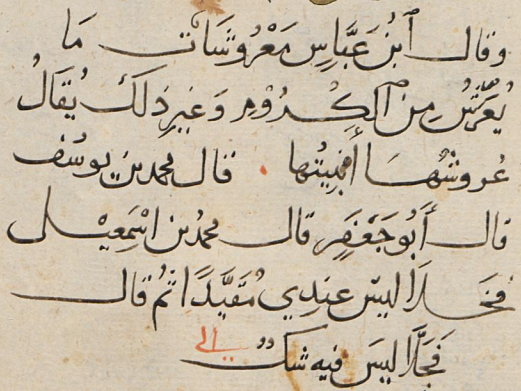 وقال ٱبن عَبَّاسٍ مَعْرُوشَاتٍ مَا
يُعَرَّشُ مِنَ ٱلكُرُومِ وَغَيرِ ذلكَ يُقَالُ
عُروشُهَا أَبْنِيَتُها قال محمد بن يوسُف
قال أَبُو جَعْفَرٍ قال محمدُ بن اسْمَعِيْل
فَخَلَا ليسَ عندِي مُقَيَّدًا ثُمَّ قال
فَجَلَّا ليسَ فيه شكٌّ